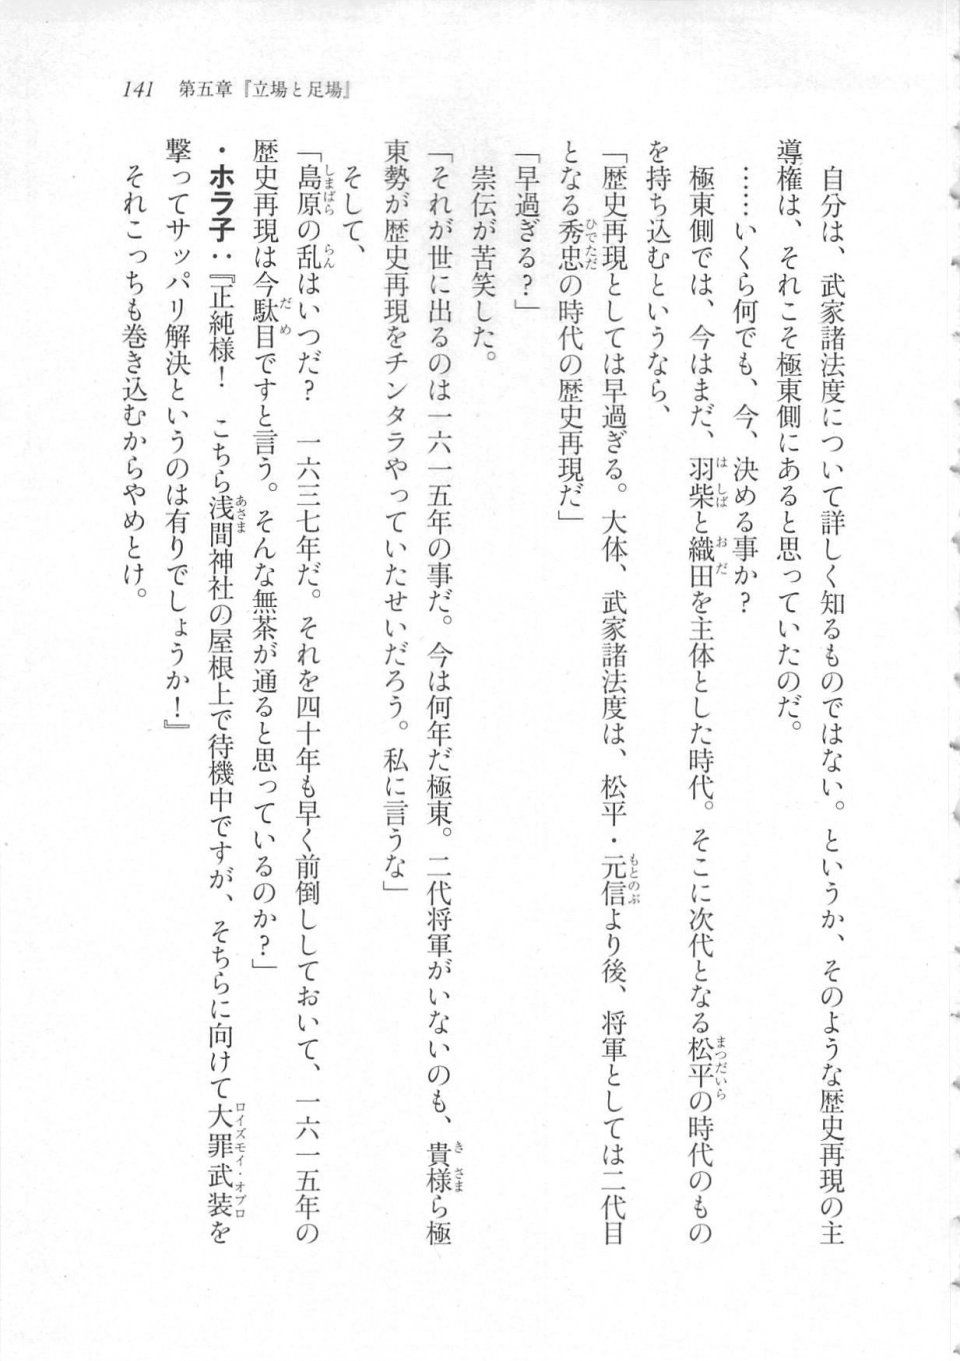 141　第五章『立場と足場』
　自分は、武家諸法度について詳しく知るものではない。というか、そのような歴史再現の主
導権は、それこそ極東側にあると思っていたのだ。
　……いくら何でも、今、決める事か？
　極東側では、今はまだ、羽柴と織田を主体とした時代。そこに次代となる松平の時代のもの
を持ち込むというなら、
「歴史再現としては早過ぎる。大体、武家諸法度は、松平・元信より後、将軍としては二代目
となる秀忠の時代の歴史再現だ」
「早過ぎる？」
　崇伝が苦笑した。
「それが世に出るのは一六一五年の事だ。今は何年だ極東。二代将軍がいないのも、貴様ら極
東勢が歴史再現をチンタラやっていたせいだろう。私に言うな」
　そして、
「島原の乱はいつだ？　一六三七年だ。それを四十年も早く前倒ししておいて、一六一五年の
歴史再現は今駄目ですと言う。そんな無茶が通ると思っているのか？」
・ホラ子：『正純様！　こちら浅間神社の屋根上で待機中ですが、そちらに向けて大罪武装を
撃ってサッパリ解決というのは有りでしょうか！』
　それこっちも巻き込むからやめとけ。